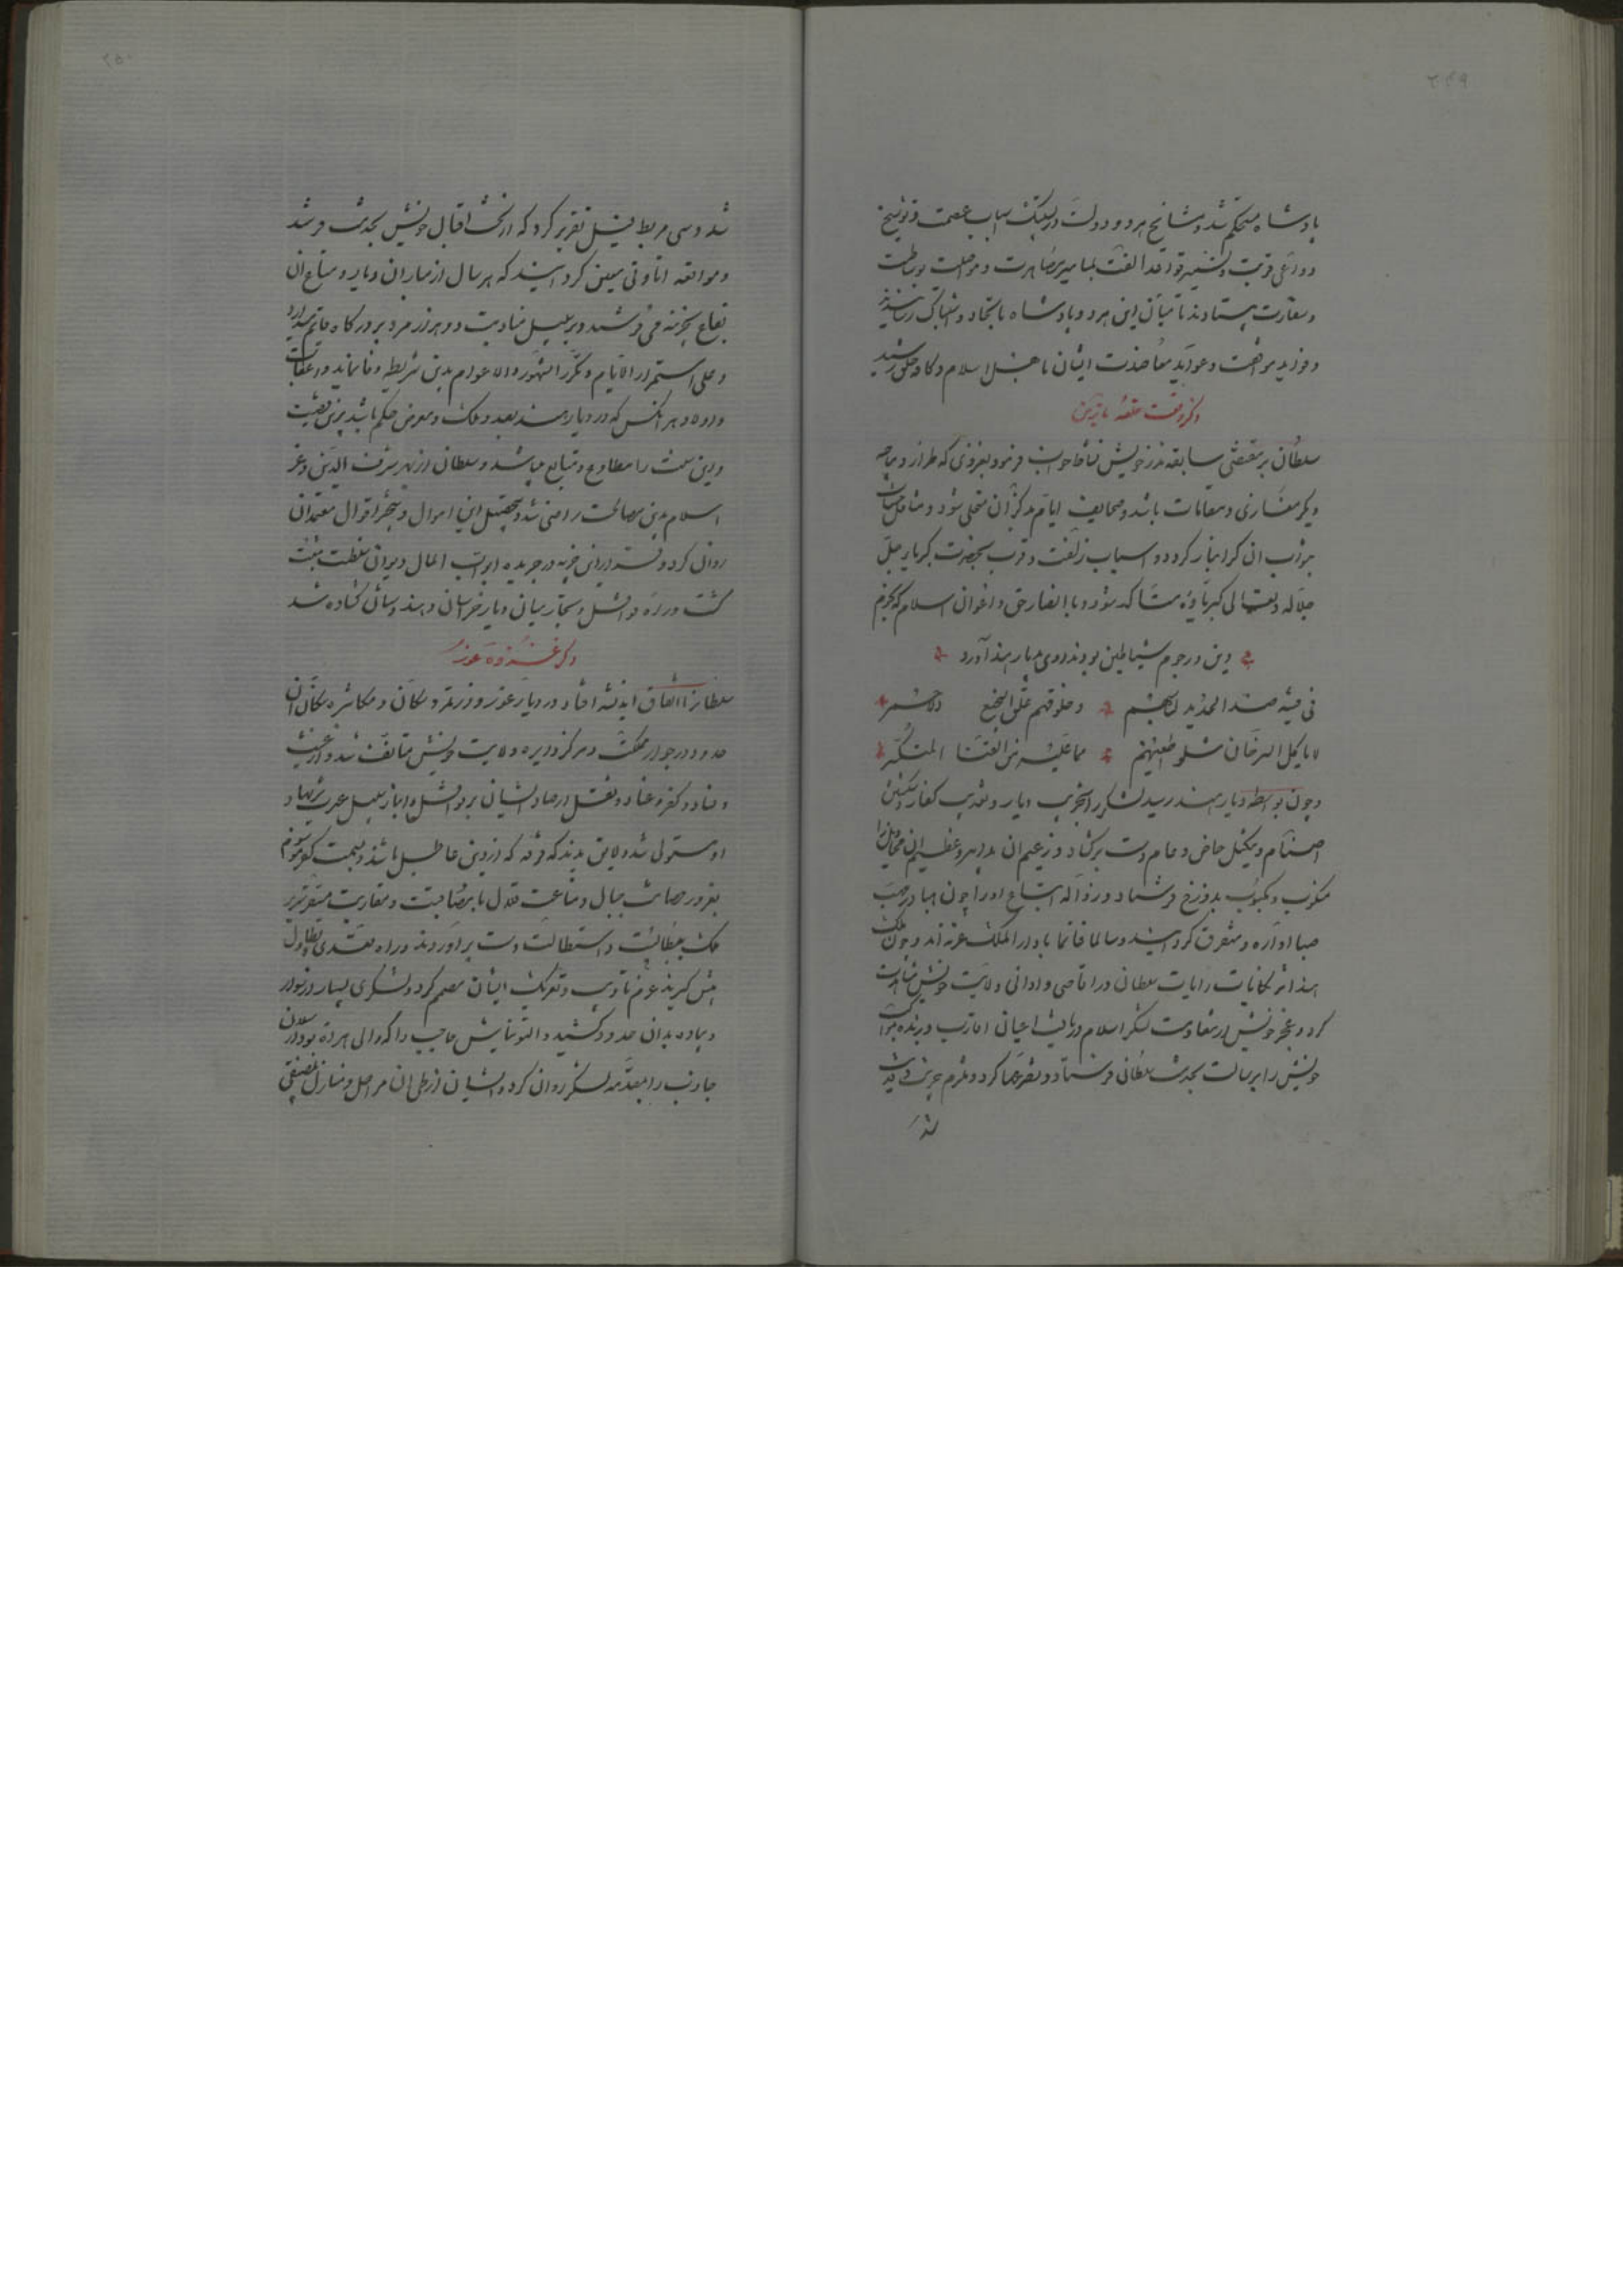 ۲۴۹
پادشاه مستحکم شد و مشایخ هر دو دولت در
دواعی قربت و قواعد الفت بمیامن مصاهرت و مواصلت بوساطت
و سفارت بیستادند تا میان این هر دو پادشاه باتحاد و اشتباک رسانیدند
و فواید موافقت و عواید معاضدت ایشان باهل اسلام و کافه خلق رسید
ذکر وقعت
سلطان بر مقتضی سابقه نذر خویش نشاط حرب فرمود بغزوی که طراز دیباجه
دیگر مغازی و مقامات باشد و صحایف ایام بذکر آن متحلی شود و
ثواب آن گرانبار گردد و اسباب زلفت و قرب بحضرت کبریا جل
جلاله و تعالی کبریاؤه متأکد شود و با انصار حق و اعوان اسلام که نجوم
دین و رجوم شیاطین بودند روی بدیار هند آورد
فی فتیة صدأ الحدید و خلوقهم علق النجیع الاحمر
لا یاکل السرحان شلو طعینهم مما علیه من القنا المتکسر
و چون بواسطه دیار هند رسید لشکر را بتخریب دیار و تعذیب کفار و تنکیس
اصنام و تنکیل خاص و عام دست برکشاد و زعیم آن مدابیر و عظیم آن مخاذیل را
منکوب و مکبوب بدوزخ فرستاد و رذاله اتباع او را چون هبا در مهب
صبا آواره و متفرق گردانید و سالما غانما با دار الملک غزنه آمد و چون ملک
هند اثر نکایات رایات سلطان در اقاصی و ادانی ولایت خویش مشاهدت
کرد و عجز خویش از مقاومت لشکر اسلام بدانست اعیان اقارب و
خویش را برسالت بحضرت سلطانی فرستاد و تضرعها کرد و ملتزم جزیت و فدیت
شد
۲۵۰
شد و سی مربط فیل تقریر کرد که از تخت اقبال خویش بحضرت فرستد
و مواقفه اتاوتی معین گردانیدند که هر سال از مبار آن دیار و متاع آن
بقاع بخزینه می فرستند و بر سبیل مناوبت دو هزار مرد بر درگاه قایم میدارد
و علی استمرار الایام و تکرر الشهور و الاعوام بدین شریطه وفا نماید و اعقاب
و اولاد و هر آنکس که در دیار هند بصدد ملک و معرض حکم باشد برین قضیت
و این سنت را مطاوع و متابع میباشد و سلطان از بهر شرف الدین و عز
اسلام بدین مصالحت راضی شد و بتحصیل این اموال و تنجز اقوال معتمدان
روان کرد و قرار این جزیه در جریده ابواب المال دیوان سلطنت مثبت
گشت و راه قوافل و تجار میان دیار خراسان و هندوستان گشاده شد
ذکر غزوه غور
سلطانرا اتفاق اندیشه افتاد در دیار غور و تمرد سکان و مکاشره مکان آن
حدود در جوار مملکت و مرکز دایره ولایت خویش متأنف شد و از خبث
و فساد و کفر و عناد و ثقل ارصاد ایشان بر قوافل و ابناء سبیل غیرت بر نهاد
او مستولی شد و لایق ندید که فرقه که از دین عاطل باشد و بسمت کفر موسوم
بغرور حصانت جبال و مناعت قلال با مصاقبت و مقاربت مستقر سریر
ملک ببطالت و استطالت دست برآورند و راه تعدی و تطاول
پیش گیرند عزم تأدیب و تعریک ایشان مصمم کرد و لشکری بسیار از سوار
و پیاده بدان حدود کشید و التونتاش حاجب را که والی هراة بود و ارسلان
جاذب را بمقدمه لشکر روان کرد و ایشان از طی آن مراحل و منازل بمضیقی